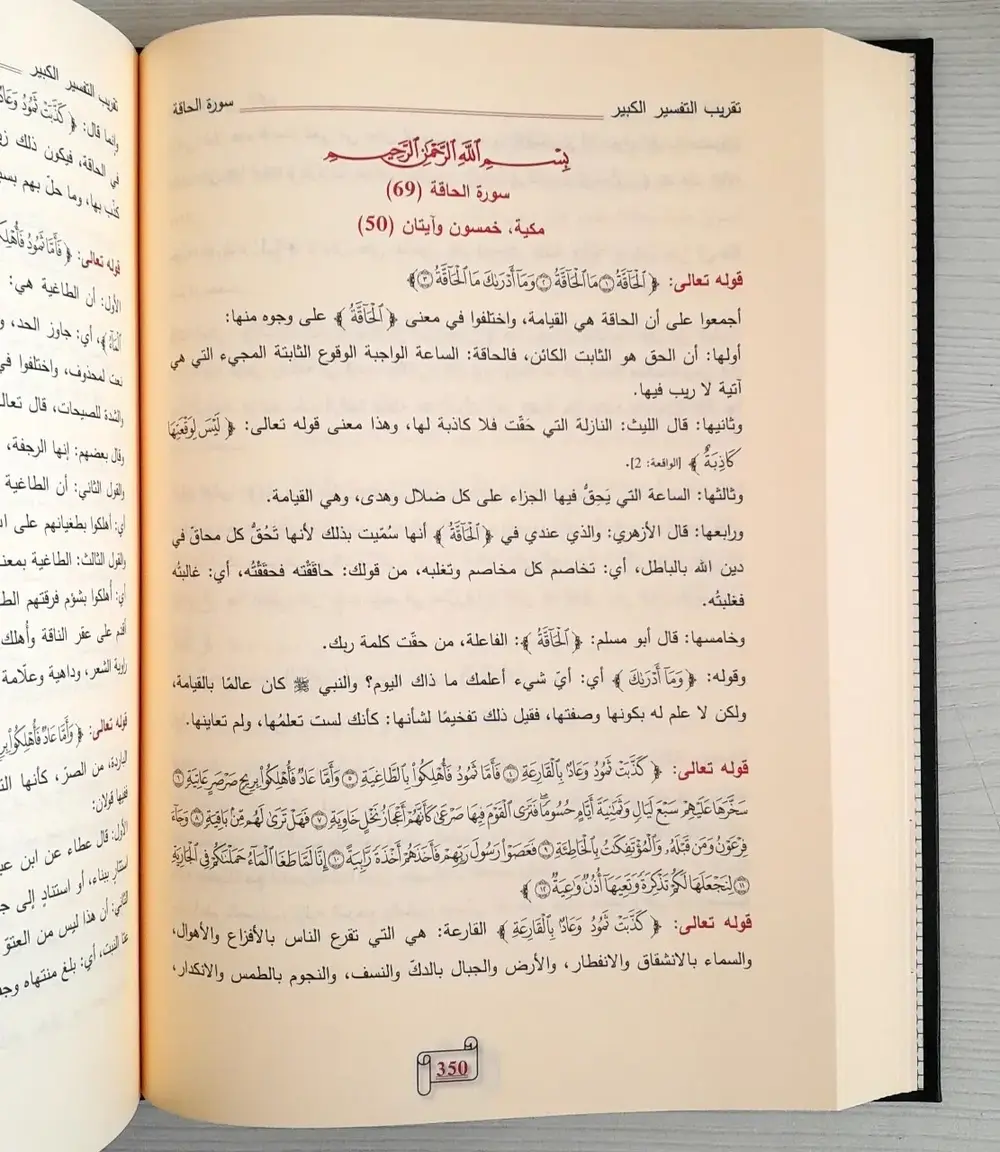 تقريب التفسير الكبير
سورة الحاقة
بِسْمِ اللَّهِ الرَّحْمَٰنِ الرَّحِيمِ
سورة الحاقة (69)
مكية، خمسون وآيتان (50)
قوله تعالى: ﴿ ٱلْحَآقَّةُ ۝١ مَا ٱلْحَآقَّةُ ۝٢ وَمَآ أَدْرَىٰكَ مَا ٱلْحَآقَّةُ ۝٣ ﴾
أجمعوا على أن الحاقة هي القيامة، واختلفوا في معنى ﴿ ٱلْحَآقَّةُ ﴾ على وجوه منها:
أولها: أن الحق هو الثابت الكائن، فالحاقة: الساعة الواجبة الوقوع الثابتة المجيء التي هي
آتية لا ريب فيها.
وثانيها: قال الليث: النازلة التي حَقّت فلا كاذبة لها، وهذا معنى قوله تعالى: ﴿ لَيْسَ لِوَقْعَتِهَا
كَاذِبَةٌ ﴾ [الواقعة: 2].
وثالثها: الساعة التي يَحِقُّ فيها الجزاء على كل ضلال وهدى، وهي القيامة.
ورابعها: قال الأزهري: والذي عندي في ﴿ ٱلْحَآقَّةُ ﴾ أنها سُمّيت بذلك لأنها تَحُقُّ كل محاقّ في
دين الله بالباطل، أي: تخاصم كل مخاصم وتغلبه، من قولك: حاقَقْته فحقَقْتُه، أي: غالبتُه
فغلبتُه.
وخامسها: قال أبو مسلم: ﴿ ٱلْحَآقَّةُ ﴾: الفاعلة، من حقّت كلمة ربك.
وقوله: ﴿ وَمَآ أَدْرَىٰكَ ﴾ أي: أيّ شيء أعلمك ما ذاك اليوم؟ والنبي ﷺ كان عالمًا بالقيامة،
ولكن لا علم له بكونها وصفتها، فقيل ذلك تفخيمًا لشأنها: كأنك لست تعلمُها، ولم تعاينها.
قوله تعالى: ﴿ كَذَّبَتْ ثَمُودُ وَعَادٌۢ بِٱلْقَارِعَةِ ۝٤ فَأَمَّا ثَمُودُ فَأُهْلِكُوا۟ بِٱلطَّاغِيَةِ ۝٥ وَأَمَّا عَادٌ فَأُهْلِكُوا۟ بِرِيحٍ صَرْصَرٍ عَاتِيَةٍ ۝٦
سَخَّرَهَا عَلَيْهِمْ سَبْعَ لَيَالٍ وَثَمَٰنِيَةَ أَيَّامٍ حُسُومًا فَتَرَى ٱلْقَوْمَ فِيهَا صَرْعَىٰ كَأَنَّهُمْ أَعْجَازُ نَخْلٍ خَاوِيَةٍ ۝٧ فَهَلْ تَرَىٰ لَهُم مِّنۢ بَاقِيَةٍ ۝٨ وَجَآءَ
فِرْعَوْنُ وَمَن قَبْلَهُۥ وَٱلْمُؤْتَفِكَٰتُ بِٱلْخَاطِئَةِ ۝٩ فَعَصَوْا۟ رَسُولَ رَبِّهِمْ فَأَخَذَهُمْ أَخْذَةً رَّابِيَةً ۝١٠ إِنَّا لَمَّا طَغَا ٱلْمَآءُ حَمَلْنَٰكُمْ فِى ٱلْجَارِيَةِ
۝١١ لِنَجْعَلَهَا لَكُمْ تَذْكِرَةً وَتَعِيَهَآ أُذُنٌ وَٰعِيَةٌ ۝١٢ ﴾
قوله تعالى: ﴿ كَذَّبَتْ ثَمُودُ وَعَادٌۢ بِٱلْقَارِعَةِ ﴾ القارعة: هي التي تقرع الناس بالأفزاع والأهوال،
والسماء بالانشقاق والانفطار، والأرض والجبال بالدكّ والنسف، والنجوم بالطمس والانكدار،
350
تقريب التفسير الكبير
وإنما قال: ﴿ كَذَّبَتْ ثَمُودُ وَعَادٌ
في الحاقة، فيكون ذلك
كذّب بها، وما حلّ بهم
قوله تعالى: ﴿ فَأَمَّا ثَمُودُ فَأُهْلِكُوا۟
الأول: أن الطاغية هي:
ٱلْمَآءُ ﴾، أي: جاوز الحد،
نعت لمحذوف، واختلفوا في
والشدة للصيحات، قال تعالى
وقال بعضهم: إنها الرجفة،
والقول الثاني: أن الطاغية
أي: أهلكوا بطغيانهم على
والقول الثالث: الطاغية بمعنى
أي: أُهلكوا بشؤم فرقتهم
أقدم على عقر الناقة وأهلك
راوية الشعر، وداهية وعلّامة
قوله تعالى: ﴿ وَأَمَّا عَادٌ فَأُهْلِكُوا۟
الباردة، من الصرّ، كأنها
ففيها قولان:
الأول: قال عطاء عن ابن
استتار ببناء، أو استناد إلى
الثاني: أن هذا ليس من العتوّ
عتا النبت، أي: بلغ منتهاه